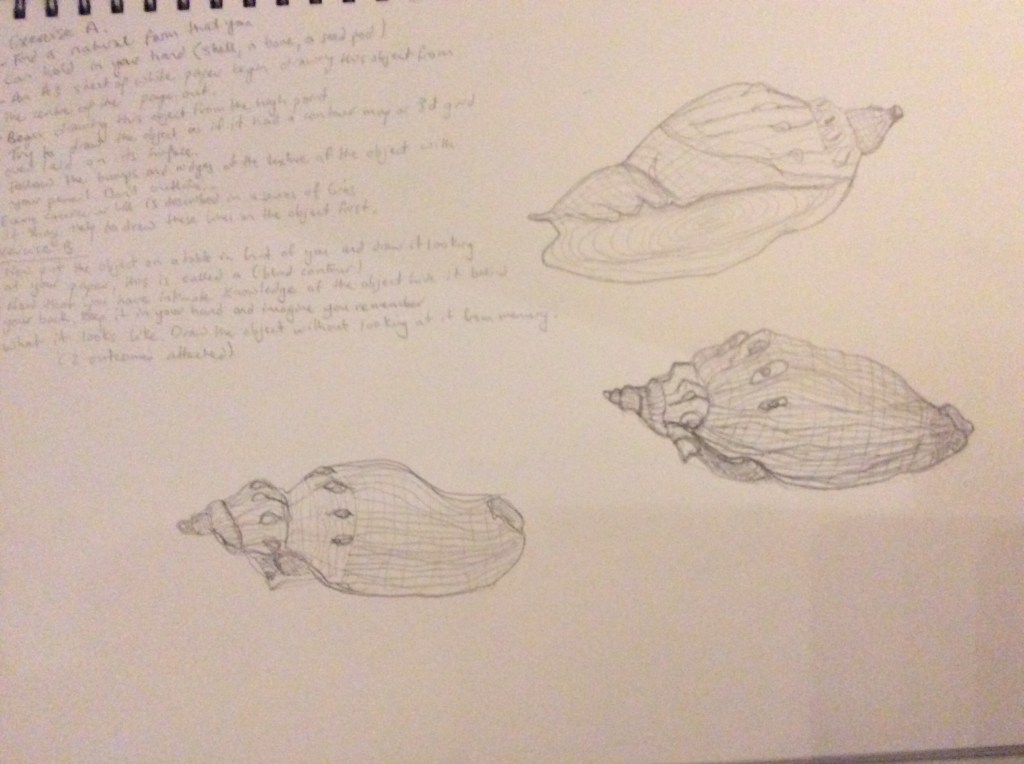 Exercise A.
- Find a natural form that you
can hold in your hand (shell, a bone, a seed pod)
- An A3 sheet of white paper begin drawing this object from
the centre of the page out.
- Begin drawing this object from the high point
Try to draw the object as if it has a contour map or 3d grid
over laid on its surface.
Follow the bumps and ridges of the texture of the object with
your pencil. Don't outline.
Every is described in a series of lines
It may help to draw these lines on the object first.
Exercise B
- Now put the object on a table in front of you and draw it looking
at your paper, this is called a (blind contour)
- Now that you have intimate knowledge of the object hide it behind
your back, keep it in your hand and imagine you remember
what it looks like. Draw the object without looking at it from memory.
(2 outcomes attached)